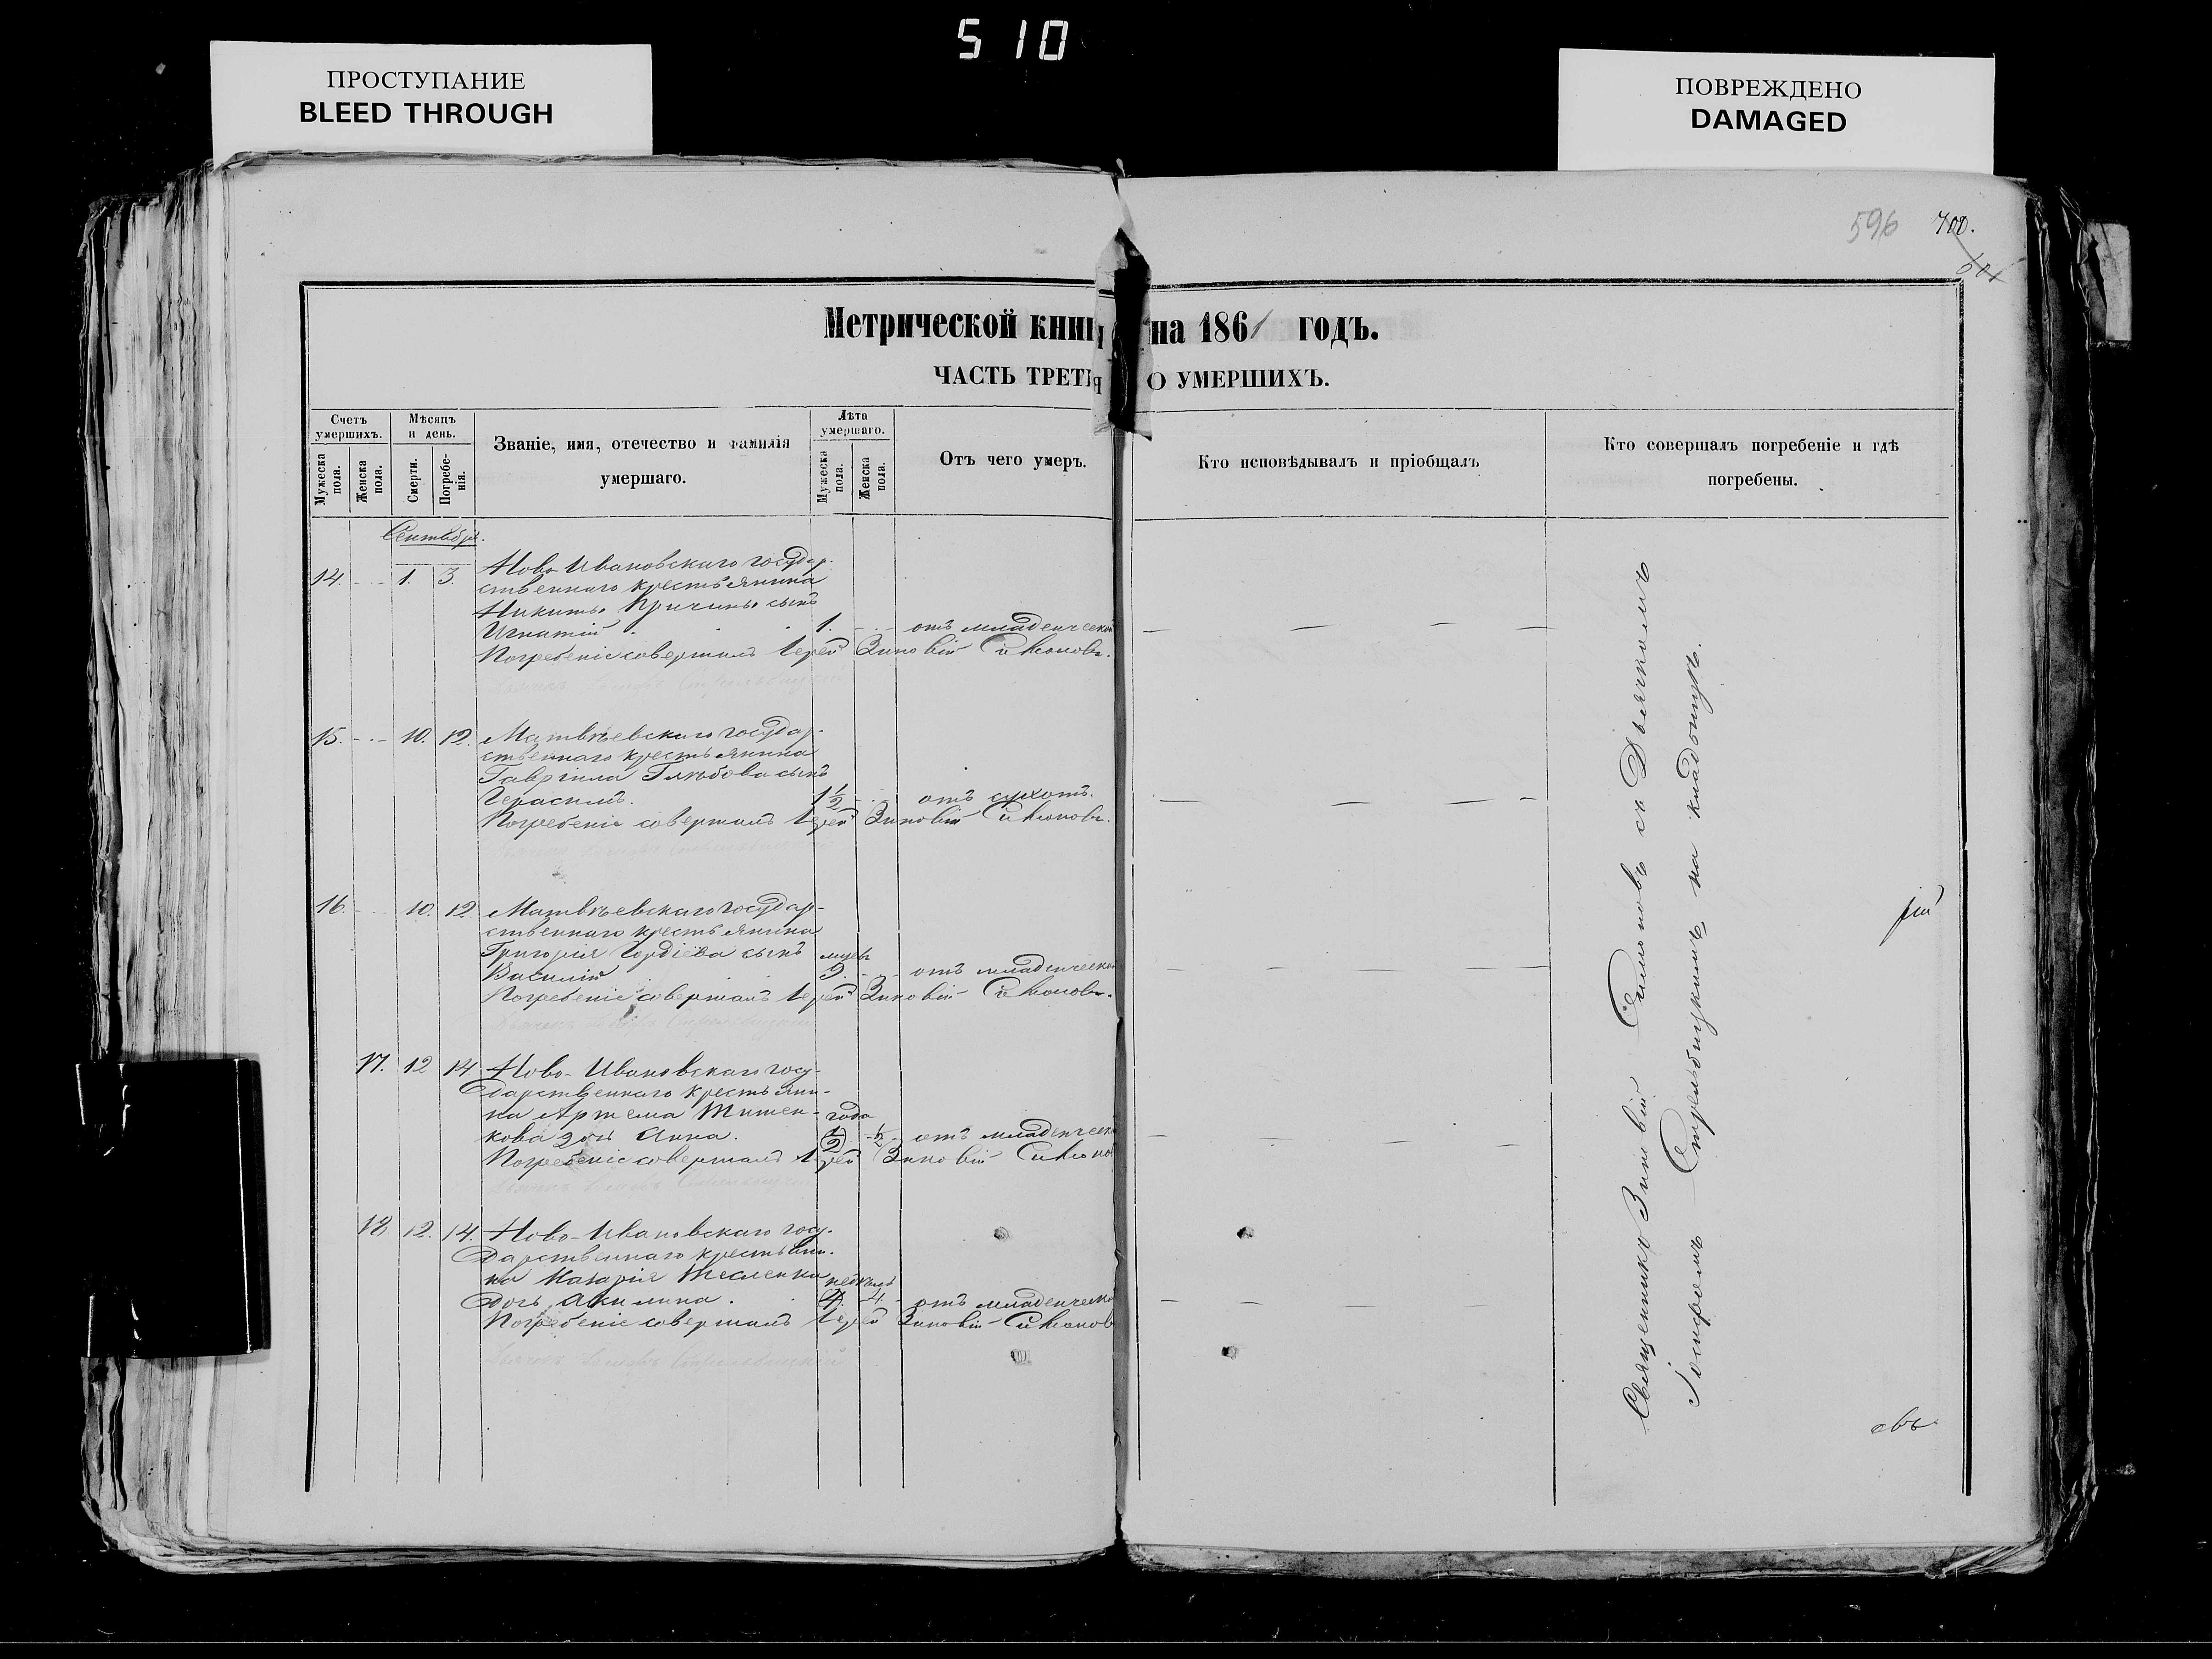 510
ПРОСТУПАНИЕ
BLEED THROUGH
ПОВРЕЖДЕНО
DAMAGED
596 700.
Метрической книги на 1861 годъ.
ЧАСТЬ ТРЕТЬЯ О УМЕРШИХЪ.
Счетъ умершихъ.
Мужеска пола.
Женска пола.
Мѣсяцъ и день.
Смерти.
Погребенія.
Званіе, имя, отечество и фамилія
умершаго.
Лѣта умершаго.
Мужеска пола.
Женска пола.
Отъ чего умеръ.
Кто исповѣдывалъ и пріобщалъ
Кто совершалъ погребеніе и гдѣ
погребены.
Сентября.
14. 1. 3. Ново-Ивановскаго государ-
ственнаго крестьянина
Никиты сынъ
Игнатій 1. отъ младенческой
Погребеніе совершалъ Іерей Зиновій
15. 10. 12. Матвѣевскаго государ-
ственнаго крестьянина
Гавріила Глѣбова сынъ
Герасимъ. 1 1/2 отъ сухотъ.
Погребеніе совершалъ Іерей Зиновій
16. 10. 12 Матвѣевскаго государ-
ственнаго крестьянина
Григорія Гордіева сынъ
Василій 2. отъ младенческой
Погребеніе совершалъ Іерей Зиновій
17. 12 14 Ново-Ивановскаго госу-
дарственнаго крестьяни-
на Артема Титен- года
кова дочь Анна. 1/2 1/2 отъ младенческ
Погребеніе совершалъ Іерей Зиновій
18 12. 14. Ново-Ивановскаго госу-
дарственнаго крестьяни-
на Назарія Тесленка недѣль
дочь Акилина. 4. 4. отъ младенческо
Погребеніе совершалъ Іерей Зиновій
Священникъ Зиновій съ Дьячкомъ
Іосифомъ Стрельбицкимъ на кладбищѣ.
рій
овъ